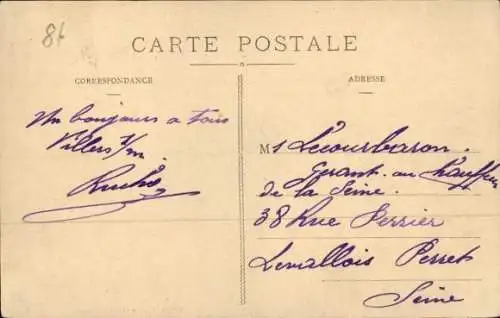 86
CARTE POSTALE
CORRESPONDANCE
ADRESSE
Un bonjour a tous
Villers s/m.
Mr Lecourbaron.
Gérant au Chauffeur
de la Seine.
38 Rue Perrier
Levallois Perret
Seine